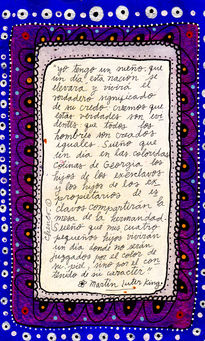 "yo tengo un sueño que
un día esta nación se
elevará y vivirá el
verdadero significado
de su credo. Creemos que
estas verdades son evi
dentes que todos los
hombres son creados
iguales. Sueño que
un día en las coloridas
Colinas de Georgia los
hijos de los exesclavos
y los hijos de los ex
propietarios de es
clavos compartirán la
mesa de la hermandad.
Sueño que mis cuatro
pequeños hijos vivirán
un día donde no serán
juzgados por el color de
su piel, sino por el con
tenido de su carácter"
Martin Luter King.